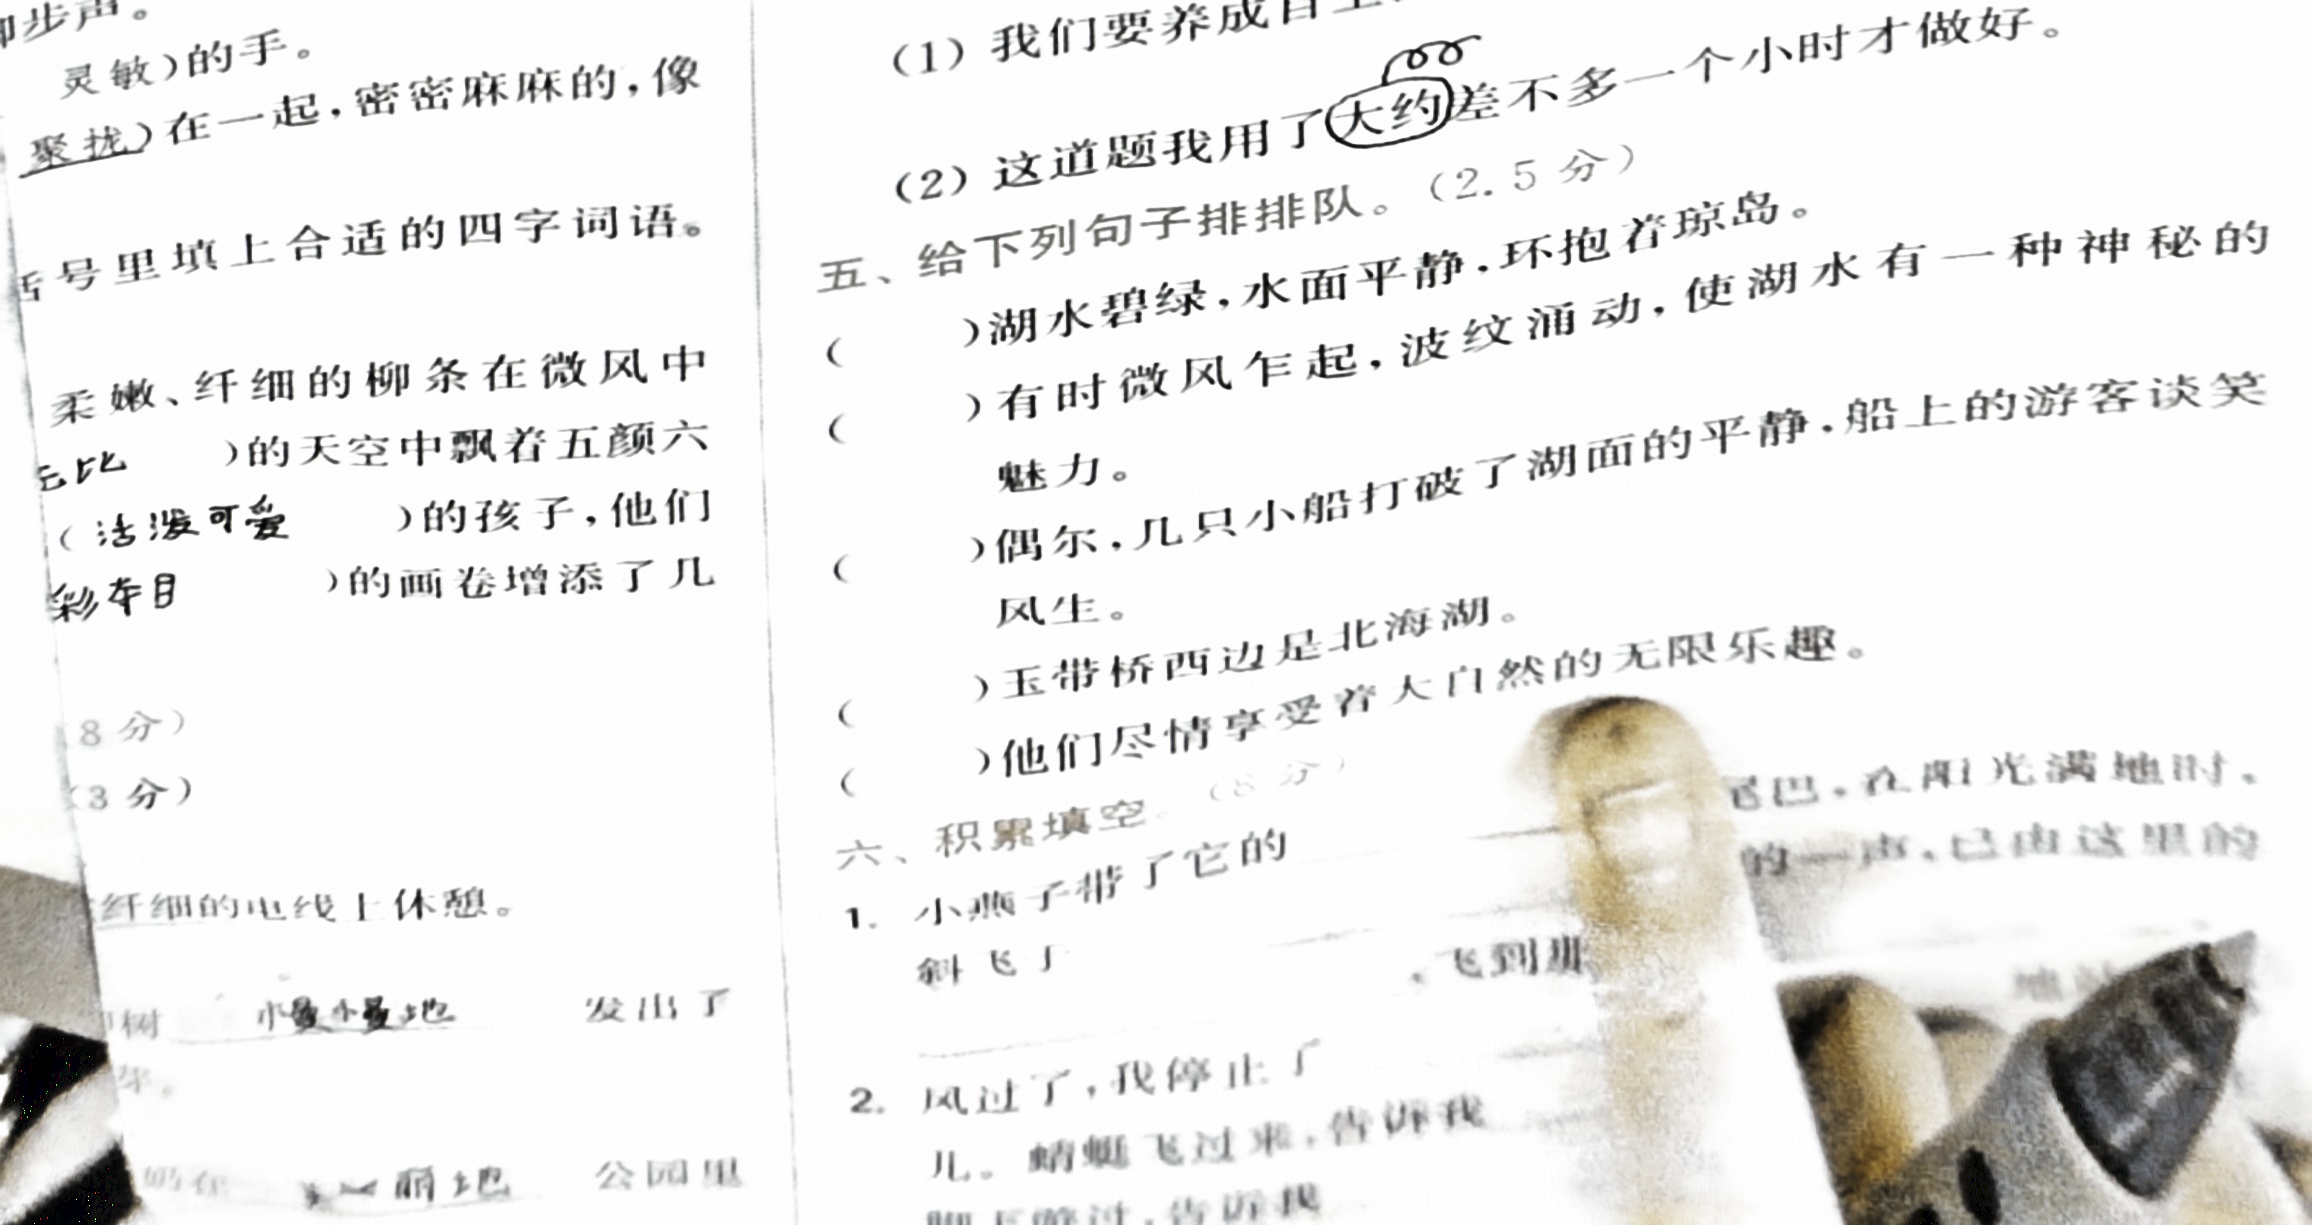 脚步声。
灵敏)的手。
聚拢)在一起,密密麻麻的,像
号里填上合适的四字词语。
柔嫩、纤细的柳条在微风中
无比 )的天空中飘着五颜六
(活泼可爱 )的孩子,他们
彩夺目 )的画卷增添了几
8分)
(3分)
纤细的电线上休憩。
树 慢慢地 发出了
芽。
公园里
(1)我们要养成自
(2)这道题我用了大约差不多一个小时才做好。
五、给下列句子排排队。(2.5分)
( )湖水碧绿,水面平静,环抱着琼岛。
( )有时微风乍起,波纹涌动,使湖水有一种神秘的
魅力。
( )偶尔,几只小船打破了湖面的平静,船上的游客谈笑
风生。
( )玉带桥西边是北海湖。
( )他们尽情享受着大自然的无限乐趣。
六、积累填空。(8分)
1. 小燕子带了它的 尾巴,在阳光满地时,
斜飞于 的一声,已由这里的
,飞到那
2. 风过了,我停止了
儿。蜻蜓飞过来,告诉我
脚下游过,告诉我